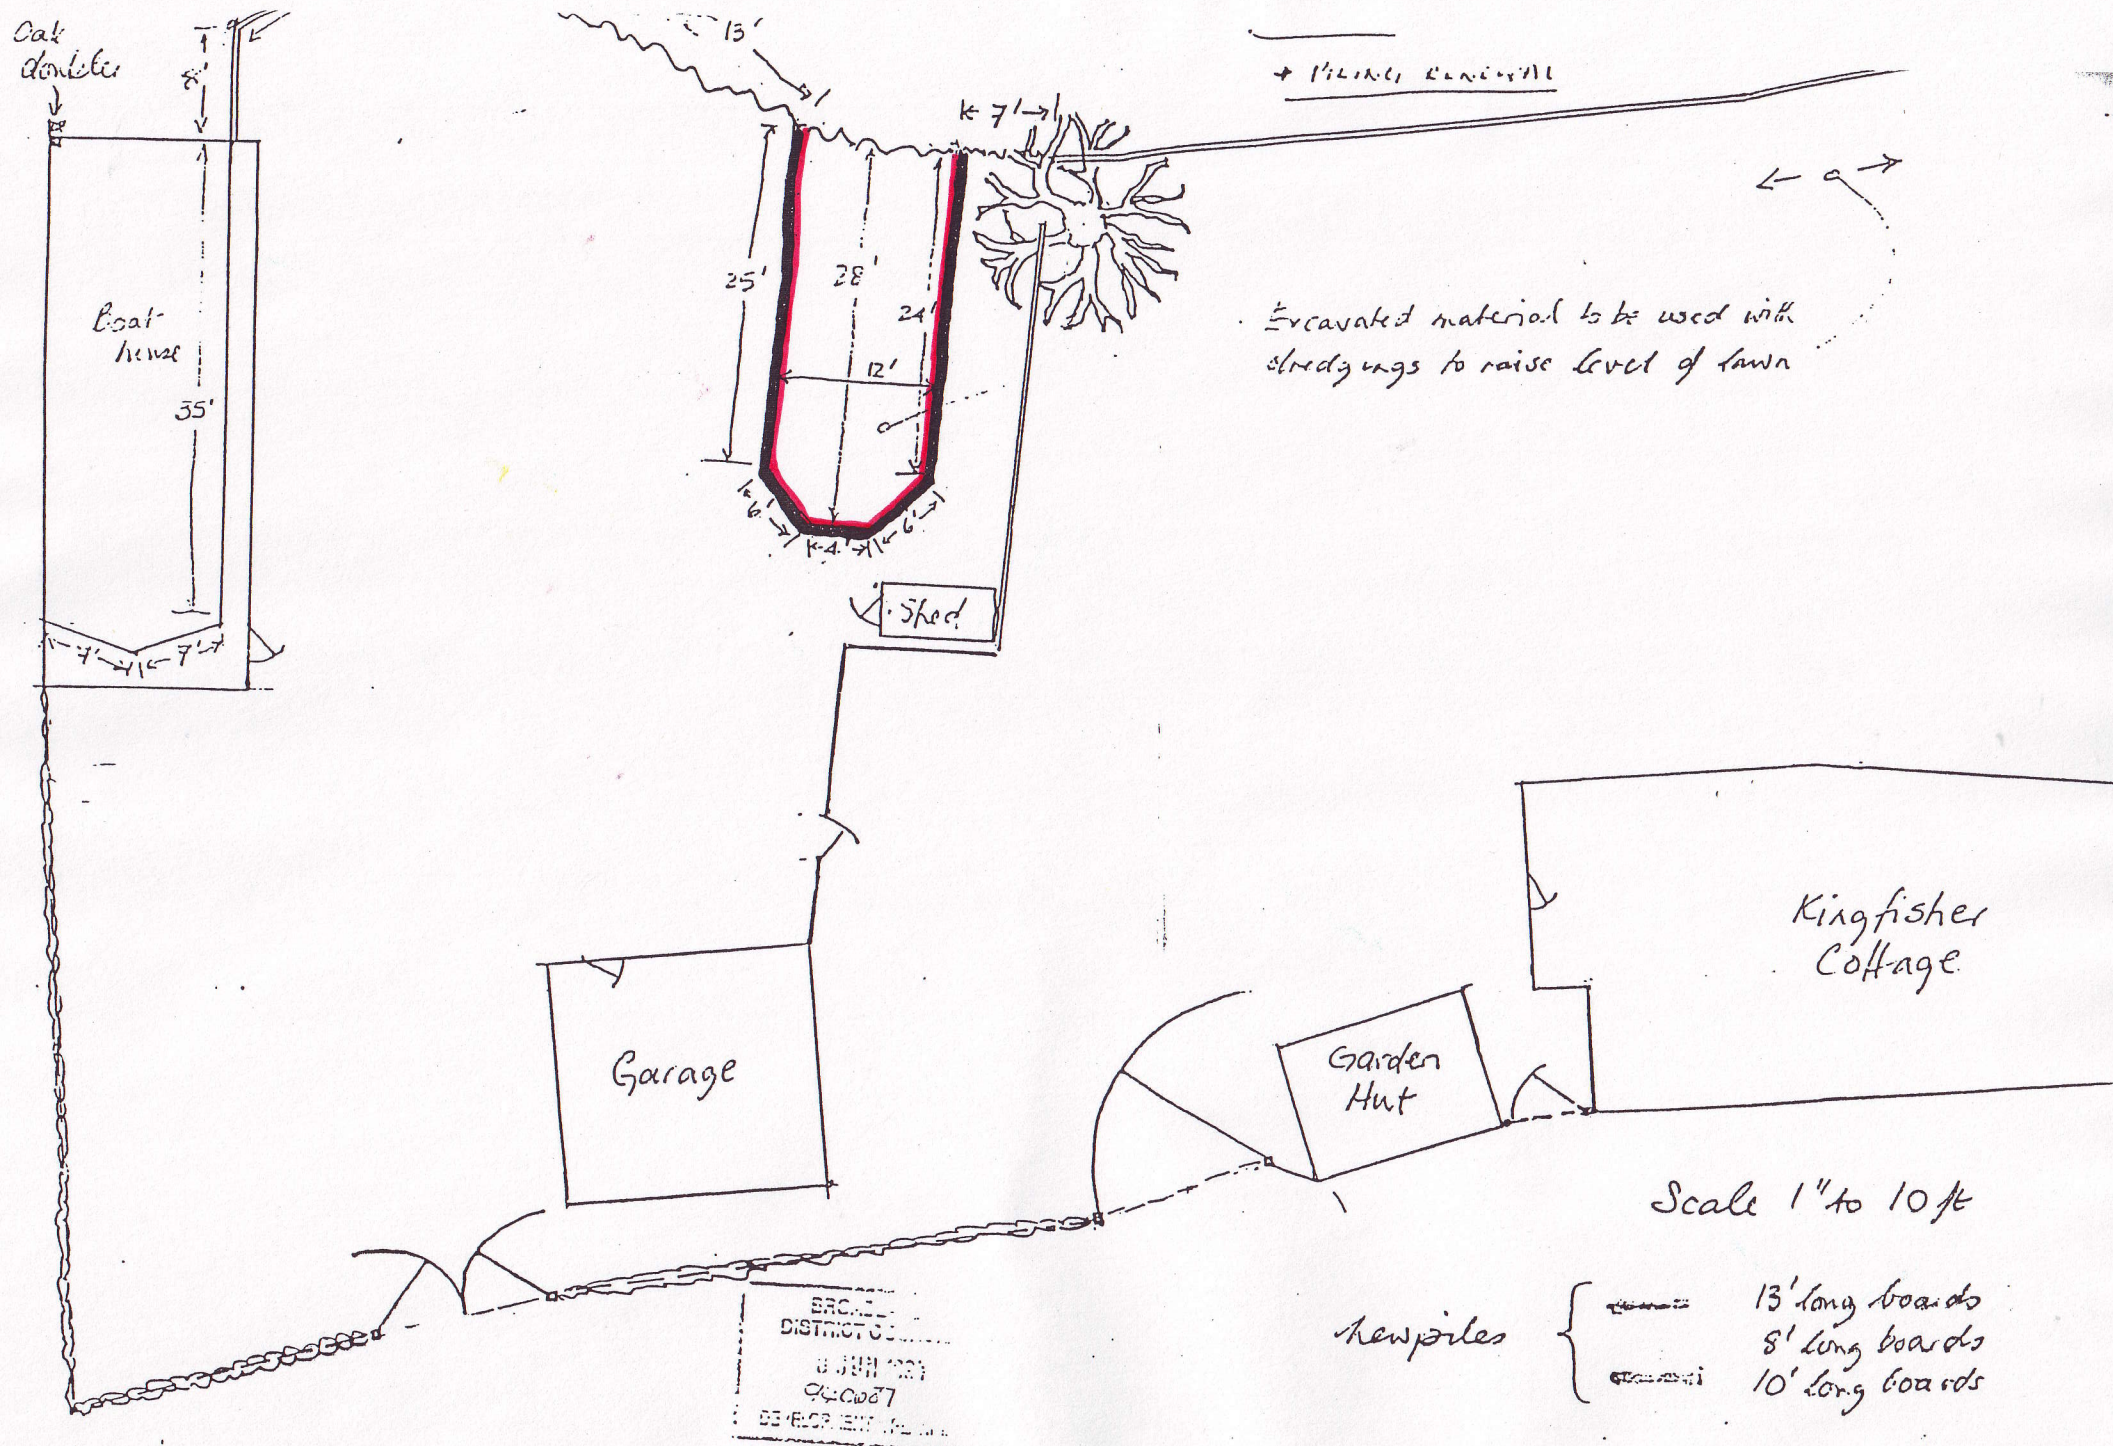 Oak
doubler
8'
13'
7'
+ PILING RENEWAL
25'
28'
24'
12'
Boat
house
35'
Excavated material to be used with
dredgings to raise level of lawn
6'
4'
6'
7'
7'
Shed
Kingfisher
Cottage
Garage
Garden
Hut
Scale 1" to 10 ft
new piles
13' long boards
8' long boards
10' long boards
DISTRICT
JUN